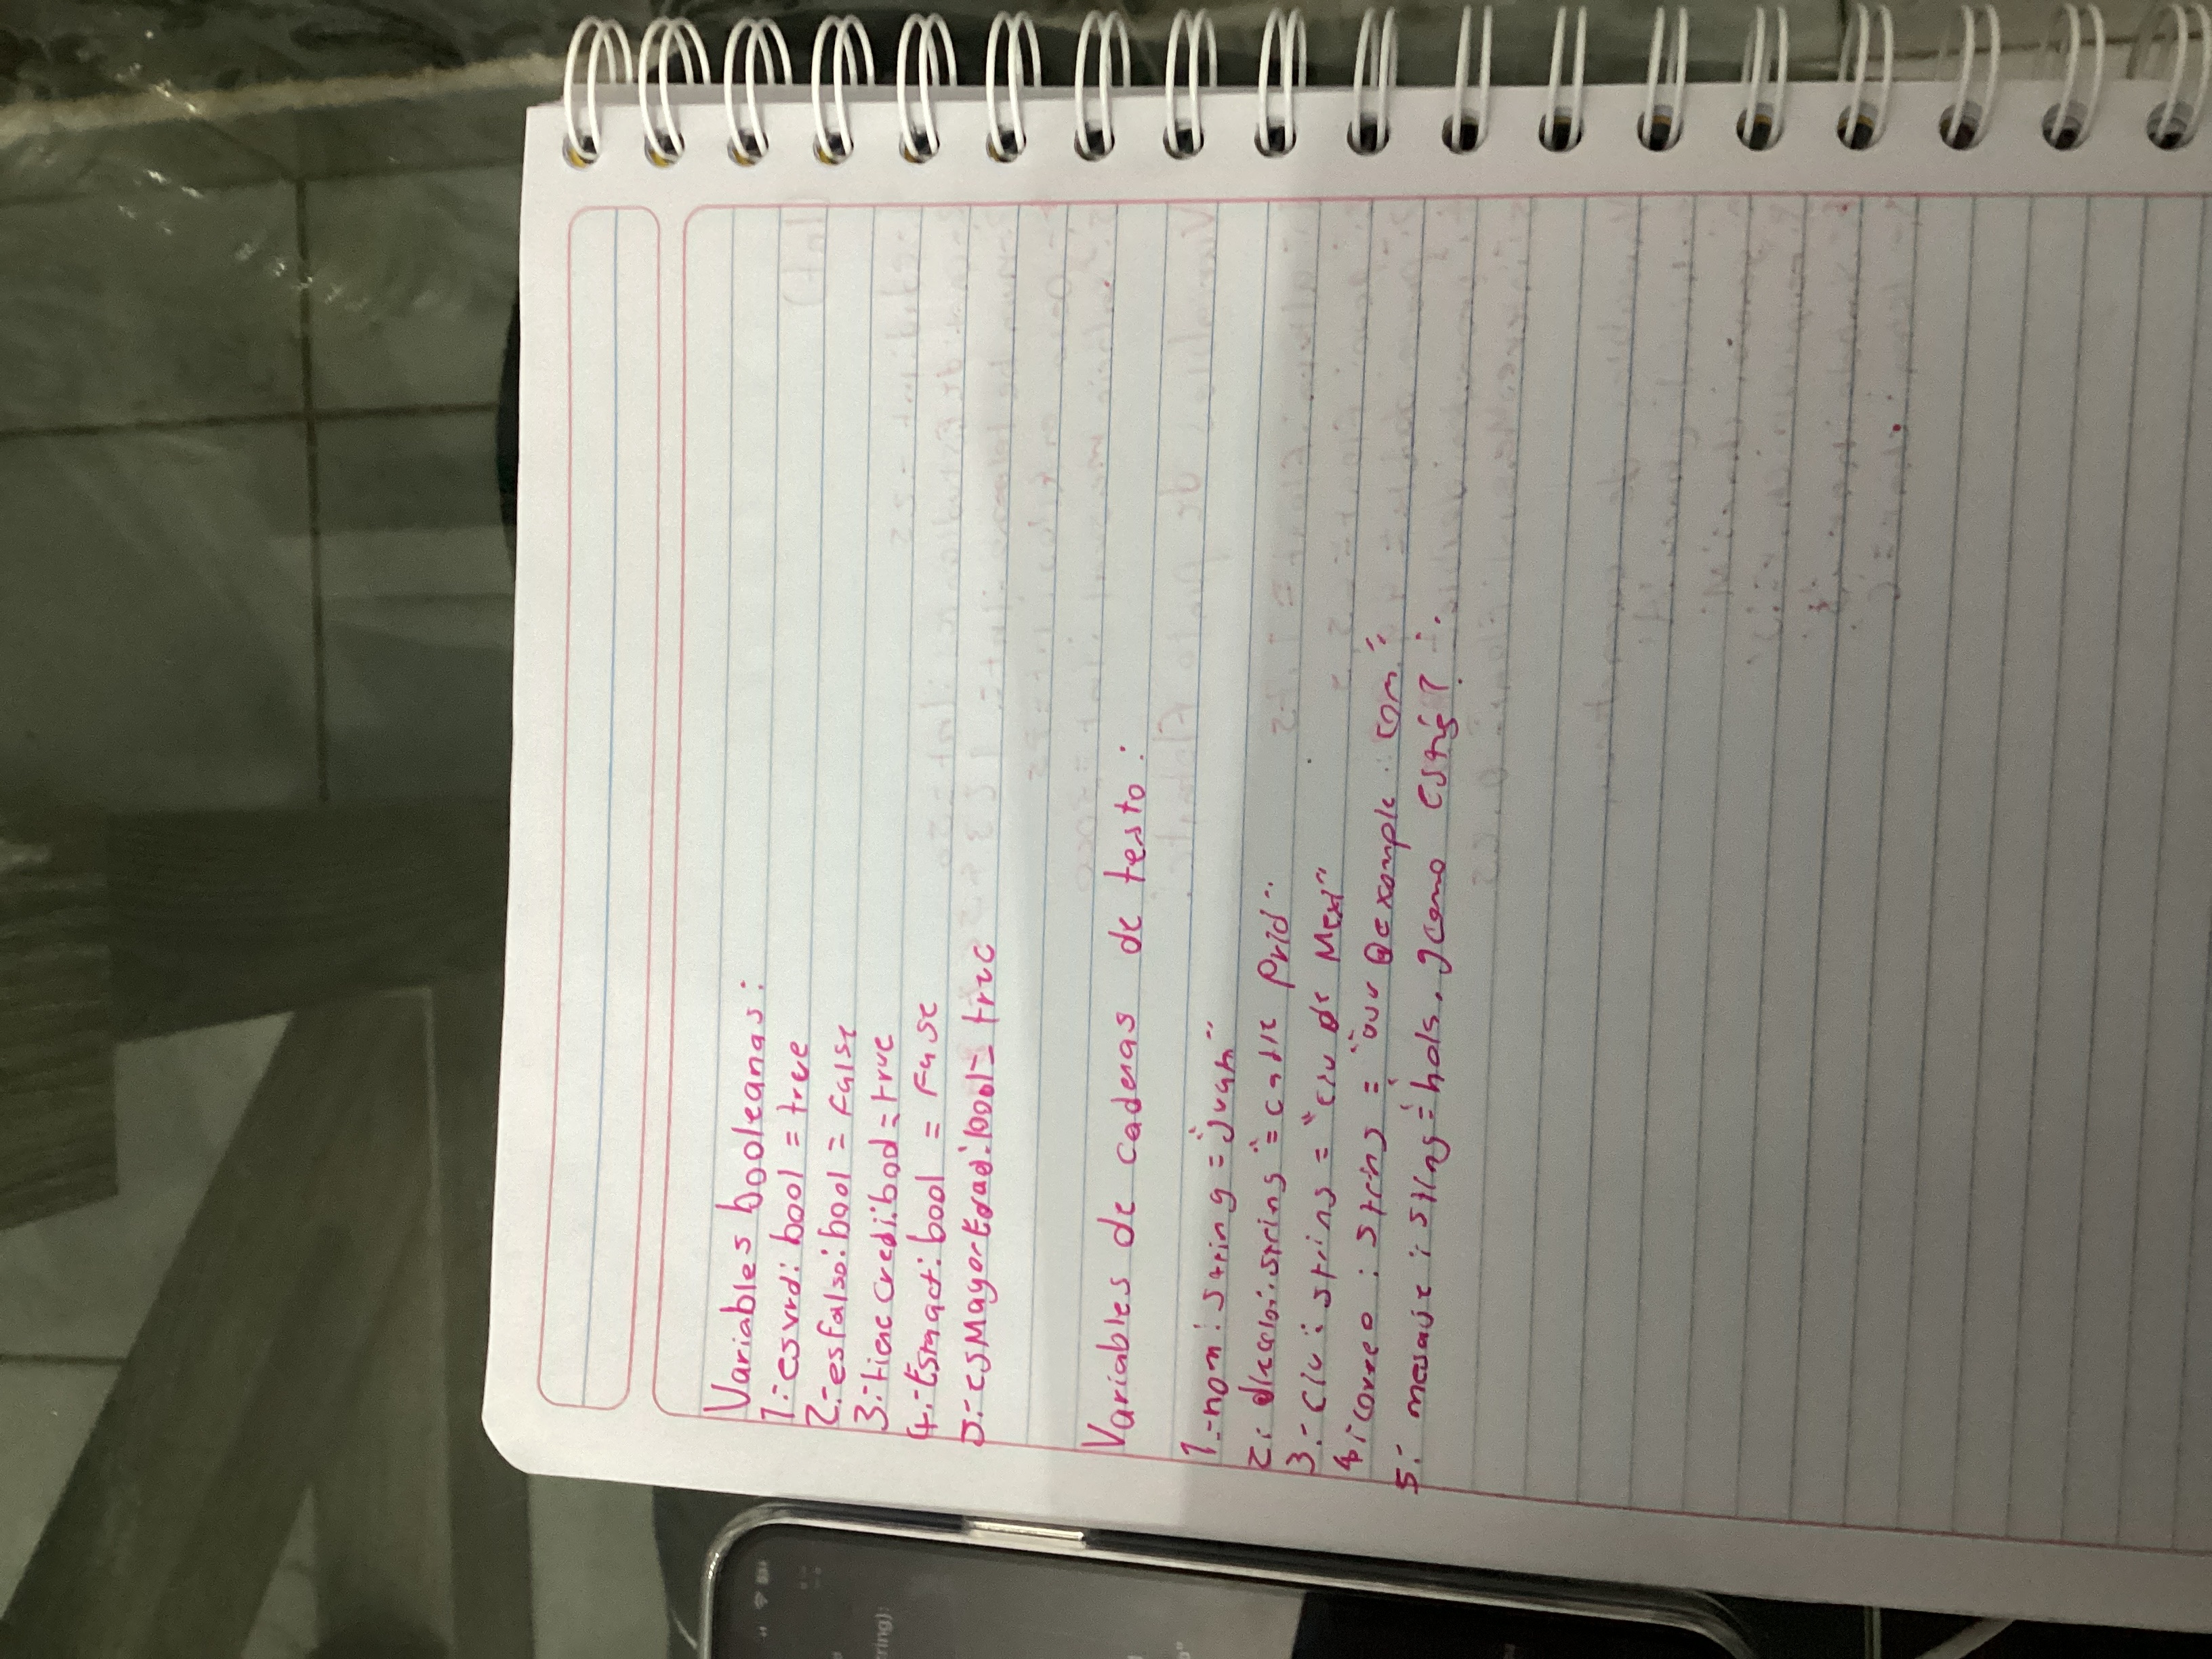 Variables booleanas:
1.- esvrd: bool = true
2.- esfalso: bool = False
3.- tieneCredi: bool = true
4.- Esmact: bool = Fase
5.- esMayorEdad: bool = true
Variables de cadenas de testo:
1.- nom: string = "juan"
2.- string = calle Prid"
3.- Ciu: string = "Ciu de Mexi"
4. correo: string = "ouu@example.com"
5.- mesaje: sting = hola, ¿como estas?
ring):